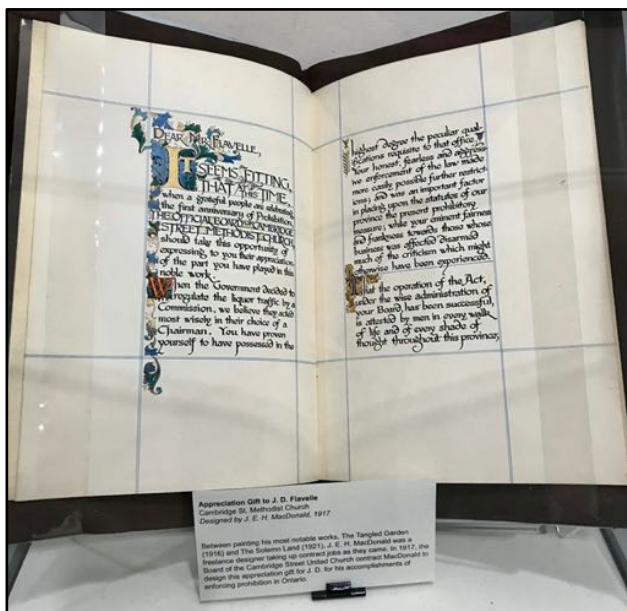 DEAR MR. FLAVELLE,
IT
SEEMS FITTING,
THAT AT THIS TIME
when a grateful people are celebrating
the first anniversary of Prohibition,
THE OFFICIAL BOARD OF CAMBRIDGE
STREET METHODIST CHURCH,
should take this opportunity of
expressing, to you their appreciation
of the part you have played in this
noble work.
When the Government decided to
regulate the liquor traffic by a
Commission, we believe they acted
most wisely in their choice of a
Chairman. You have proven
yourself to have possessed in the
highest degree the peculiar qual-
ifications requisite to that office.
Your honest, fearless and aggress-
ive enforcement of the law made
more easily possible further restrict-
ions; and was an important factor
in placing upon the statutes of our
province the present prohibitory
measure; while your eminent fairness
and frankness towards those whose
business was affected disarmed
much of the criticism which might
otherwise have been experienced.
That the operation of the Act,
under the wise administration of
your Board, has been successful,
is attested by men in every walk
of life and of every shade of
thought throughout this province,
Appreciation Gift to J. D. Flavelle
Cambridge St. Methodist Church
Designed by J. E. H. MacDonald, 1917
Between painting his most notable works, The Tangled Garden
(1916) and The Solemn Land (1921), J. E. H. MacDonald was a
freelance designer taking up contract jobs as they came. In 1917, the
Board of the Cambridge Street United Church contract MacDonald to
design this appreciation gift for J. D. for his accomplishments of
enforcing prohibition in Ontario.